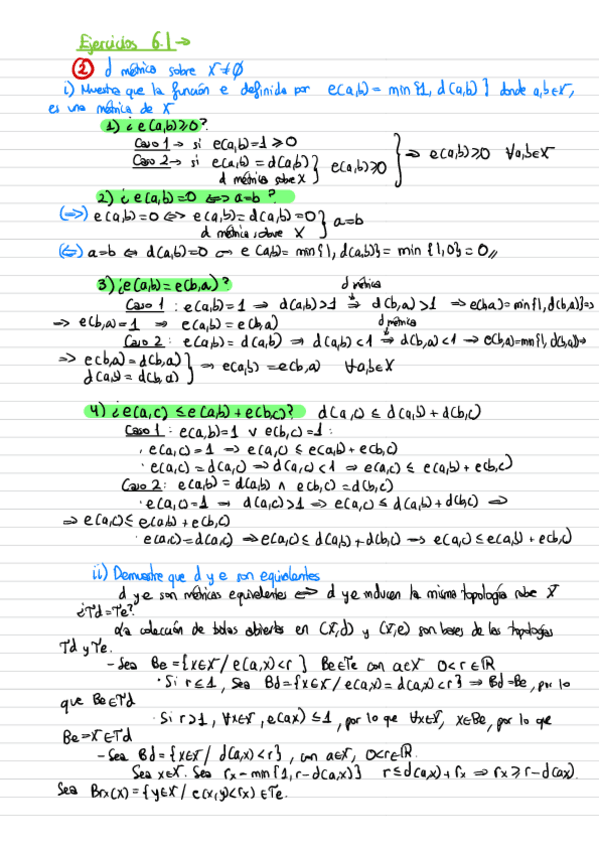 Ejercicios 6.1 →
② d métrica sobre X≠∅
i) Muestre que la función e definida por e(a,b) = min{1, d(a,b)} donde a,b∈X,
es una métrica de X
1) ¿e(a,b)≥0?
Caso 1 → si e(a,b)=1 ≥0
Caso 2 → si e(a,b) = d(a,b) } e(a,b)≥0 } ⇒ e(a,b)≥0 ∀a,b∈X
d métrica sobre X
2) ¿e(a,b)=0 ⟺ a=b?
(⇒) e(a,b)=0 ⟺ e(a,b)= d(a,b)=0 } a=b
d métrica sobre X
(⇐) a=b ⇔ d(a,b)=0 ⇒ e(a,b)= min{1, d(a,b)} = min {1,0} = 0,,
3) ¿e(a,b)=e(b,a)? d métrica
Caso 1 : e(a,b)=1 ⇒ d(a,b)>1 ⇒ d(b,a) >1 ⇒ e(b,a)=min{1,d(b,a)}=>
=> e(b,a)=1 ⇒ e(a,b) = e(b,a) d métrica
Caso 2 : e(a,b) = d(a,b) ⇒ d(a,b) <1 ⇒ d(b,a) <1 ⇒ e(b,a)=min{1, d(b,a)}⇒
=> e(b,a)= d(b,a) } ⇒ e(a,b) =e(b,a) ∀a,b∈X
d(a,b) = d(b,a)
4) ¿e(a,c) ≤ e(a,b) + e(b,c)? d(a,c) ≤ d(a,b) + d(b,c)
Caso 1 : e(a,b)=1 ∨ e(b,c)=1 :
· e(a,c) =1 ⇒ e(a,c) ≤ e(a,b) + e(b,c)
· e(a,c) = d(a,c) ⇒ d(a,c) <1 ⇒ e(a,c) ≤ e(a,b) + e(b,c)
Caso 2: e(a,b) = d(a,b) ∧ e(b,c) = d(b,c)
· e(a,c) =1 → d(a,c)>1 ⇒ e(a,c) ≤ d(a,b) + d(b,c) ⇒
⇒ e(a,c) ≤ e(a,b) + e(b,c)
· e(a,c)= d(a,c) ⇒ e(a,c) ≤ d(a,b) + d(b,c) ⇒ e(a,c) ≤ e(a,b) + e(b,c)
ii) Demuestre que d y e son equivalentes
d y e son métricas equivalentes ⟺ d y e inducen la misma topología sobre X
¿Td=Te?
La colección de bolas abiertas en (X,d) y (X,e) son bases de las topologías
Td y Te.
- Sea Be = {x∈X / e(a,x)<r } Be∈Te con a∈X 0<r∈ℝ
· Si r≤1, Sea Bd={x∈X / e(a,x) = d(a,x) <r} ⇒ Bd=Be, por lo
que Be∈Td
· Si r>1, ∀x∈X, e(a,x) ≤1, por lo que ∀x∈X, x∈Be, por lo que
Be=X∈Td
- Sea Bd = {x∈X / d(a,x)<r}, con a∈X, 0<r∈ℝ.
Sea x∈X. Sea rx - min{1, r-d(a,x)} r≤d(a,x)+ rx ⇒ rx ≥ r-d(a,x).
Sea Brx(x) = {y∈X / e(x,y)<rx} ∈Te.